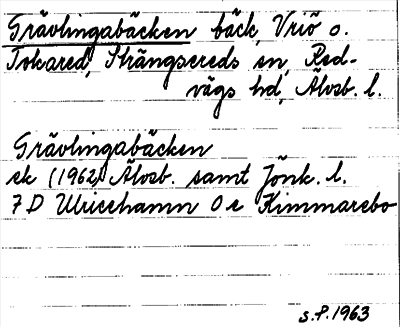 Grävlingabäcken bäck, Vriö o.
Tokared, Strängsereds sn, Red-
vägs hd, Älvsb. l.
Grävlingabäcken
ek (1962) Älvsb. samt Jönk. l.
7 D Ulricehamn 0 e Kimmarebo
s.P. 1963